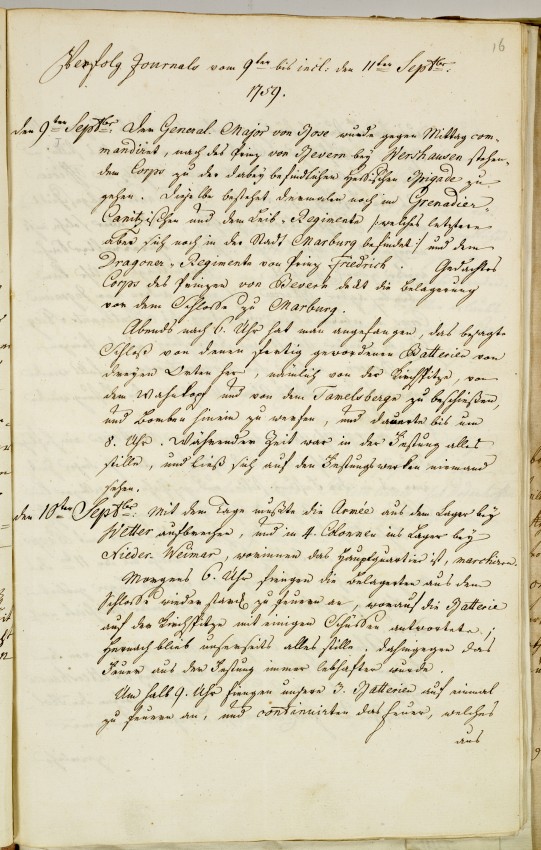 16
Verfolg Journals vom 9ten bis incl: den 11ten Septbr:
1759.
den 9ten Septbr: Der General-Major von Bose wurde gegen Mittag com-
mandiret, nach des Prinz von Bevern bey Wershausen stehen-
dem Corps zu der dabey befindlichen Hessischen Brigade zu
gehen. Dieselbe bestehet dermalen noch im Grenadier-
Canitzischen und dem Leib-Regimente /:welches letztere
aber sich noch in der Stadt Marburg befindet:/ und dem
Dragoner-Regimente von Prinz Friedrich. Gedachtes
Corps des Prinzen von Bevern deckt die Belagerung
von dem Schlosse zu Marburg.
Abends nach 6. Uhr hat man angefangen, das besagte
Schloß von denen fertig gewordenen Batterien von
dreyen Orten her, nämlich von der Kirchspitze, von
dem Wahnkopf und von dem Tamelsberge zu beschießen,
und Bomben hinein zu werfen, und dauerte bis um
8. Uhr. Während der Zeit war in der Festung alles
stille, und ließ sich auf den Festungswerken niemand
sehen.
den 10ten Septbr: Mit dem Tage mußte die Armée aus dem Lager bey
Wetter aufbrechen, und in 4. Colonnen ins Lager bey
Nieder-Weimar, worinnen das Hauptquartier ist, marchiren.
Morgens 6. Uhr fiengen die Belagerten aus dem
Schlosse wieder stark zu feuern an, worauf die Batterie
auf der Kirchspitze mit einigen Schüssen antwortete;
hernach blieb unserseits alles stille, dahingegen das
Feuer aus der Festung immer lebhafter wurde.
Um halb 9. Uhr fiengen unsere 3. Batterien auf einmal
zu feuern an, und continuirten das Feuer, welches
aus